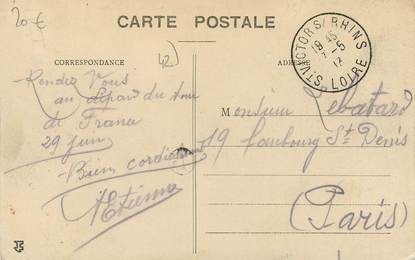 20 €
CARTE POSTALE
42
CORRESPONDANCE
ADRESSE
ST VICTOR S/ RHINS
19 45
7 -5
13
LOIRE
Rendez Vous
au départ du Tour
de France
29 juin
Bien cordialement
Etienne
Monsieur Lebatard
19 Faubourg St Denis
(Paris)